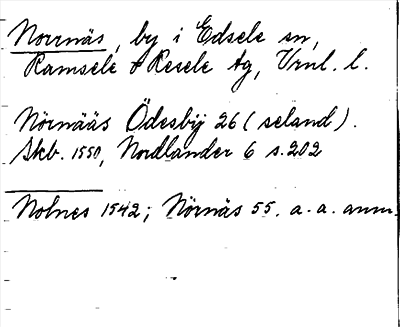 Norrnäs, by i Edsele sn,
Ramsele o Resele tg, Vrnl. l.
Nörnääs Ödesbÿ 26 (seland).
Skb. 1550, Nordlander 6 s. 202
Nolnes 1542; Nörnäs 55. a. a. anm.